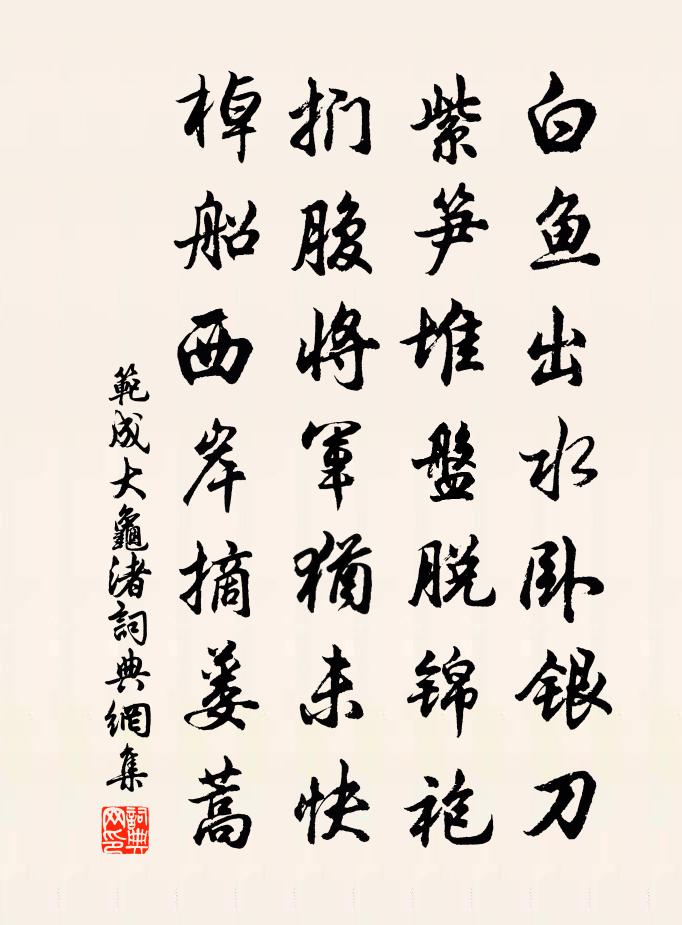 白鱼出水卧银刀
紫笋堆盘脱锦袍
捫腹将軍犹未快
棹船西岸摘蒌蒿
範成大龜渚詞典網集
詞典
网印